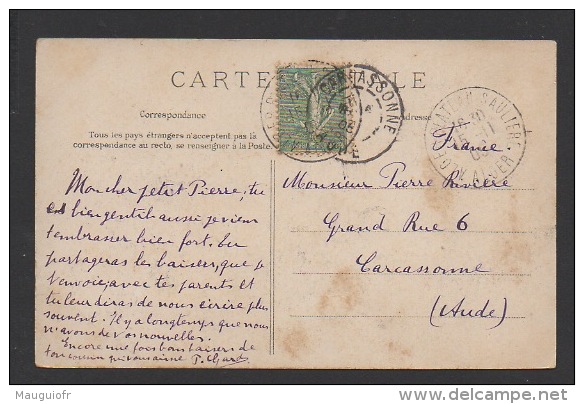 CARTE POSTALE
CARCASSONNE
ALGER
Correspondance
Adresse
Tous les pays étrangers n'acceptent pas la
correspondance au recto, se renseigner à la Poste.
France.
Mon cher petit Pierre, tu
es bien gentil aussi je viens
t'embrasser bien fort. Tu
partageras les baisers, que je
t'envoie, avec tes parents et
tu leur diras de nous écrire plus
souvent. Il y a longtemps que nous
n'avons de vos nouvelles.
Encore une fois bons baisers de
ton cousin qui vous aime
Monsieur Pierre Rivière
Grand Rue 6
Carcassonne
(Aude)
Mauguiofr
delcampe.net